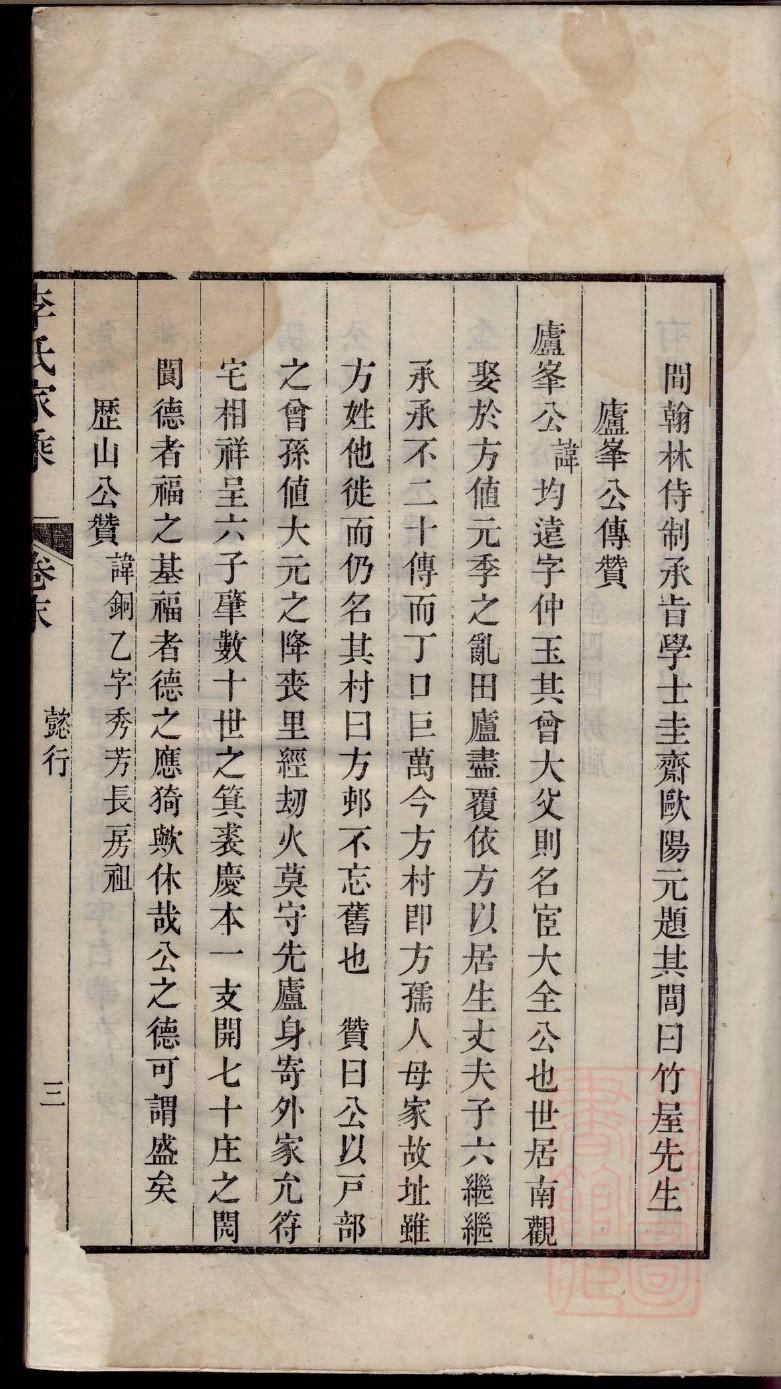 問翰林侍制承旨學士圭齋歐陽元題其間曰竹屋先生
廬峯公傳贊
廬峯公諱均遠字仲玉其曾大父則名宦大全公也世居南觀
娶於方值元季之亂田廬盡覆依方以居生丈夫子六繼繼
承承不二十傳而丁口巨萬今方村即方孺人母家故址雖
方姓他徙而仍名其村曰方邨不忘舊也　贊曰公以戸部
之曾孫值大元之降喪里經刼火莫守先廬身寄外家允符
宅相祥呈六子肇數十世之箕裘慶本一支開七十庄之閥
閱德者福之基福者德之應猗歟休哉公之德可謂盛矣
歴山公贊諱銅乙字秀芳長房祖
李氏家乘　卷末　懿行　三